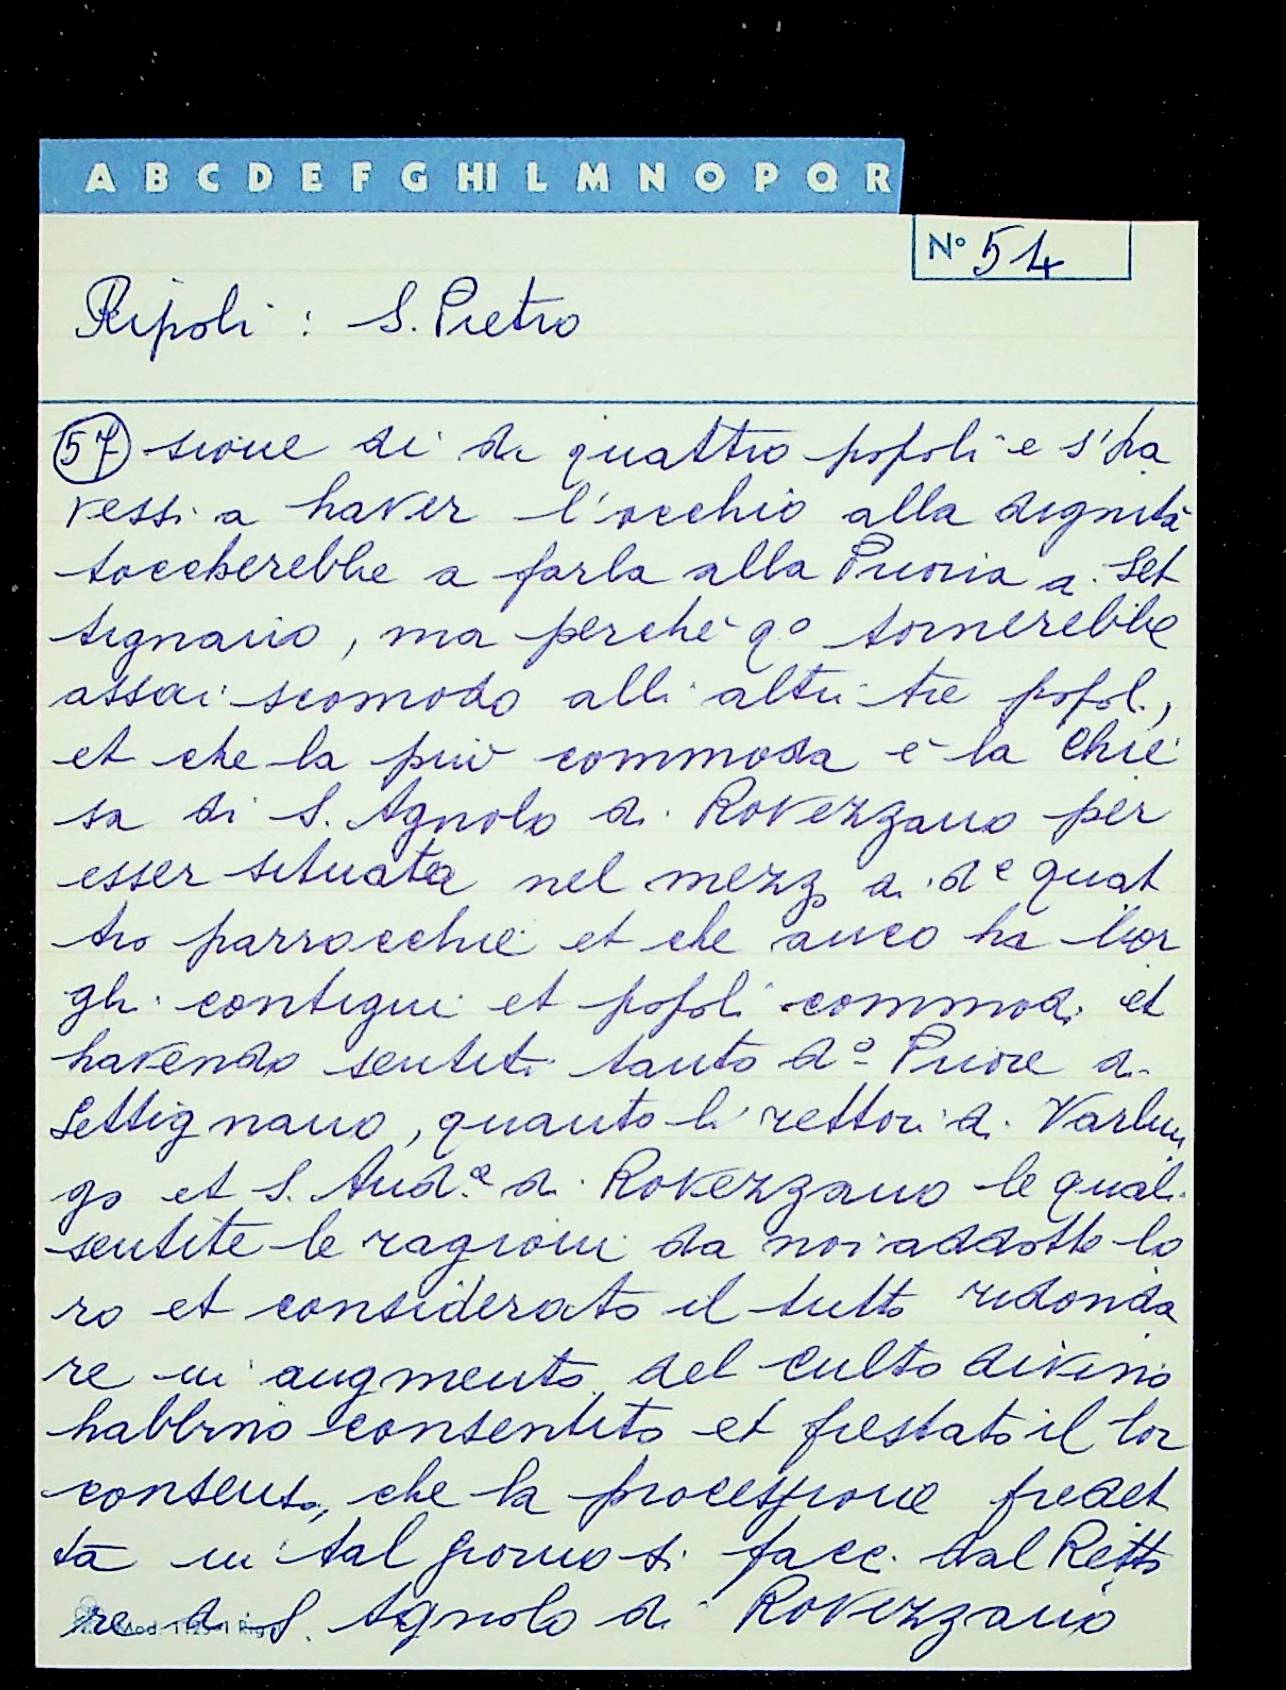 A B C D E F G HI L M N O P Q R
Nº 54
Ripoli : S. Pietro
57 sione di di quattro popoli e s'ha
vessi a haver l'occhio alla dignità
toccherebbe a farla alla Prioria di Set
tignano, ma perchè qº tornerebbe
assai scomodo alli altri tre popoli,
et che la più commoda è la Chie
sa di S. Agnolo di Rovezzano per
esser situata nel mezzo di dº quat
tro parrocchie et che anco ha luo
ghi contigui et popoli commodi et
havendo sentiti tanto dº Priore di
Settignano, quanto li rettori di Varlun
go et S. And.ª di Rovezzano le quali
sentite le ragioni da noi addotte lo
ro et considerato il tutto ridonda
re in augmento del culto divino
habbino consentito et prestato il lor
consenso, che la processione predet
ta in tal giorno si facc. dal Retto
re di S. Agnolo di Rovezzano